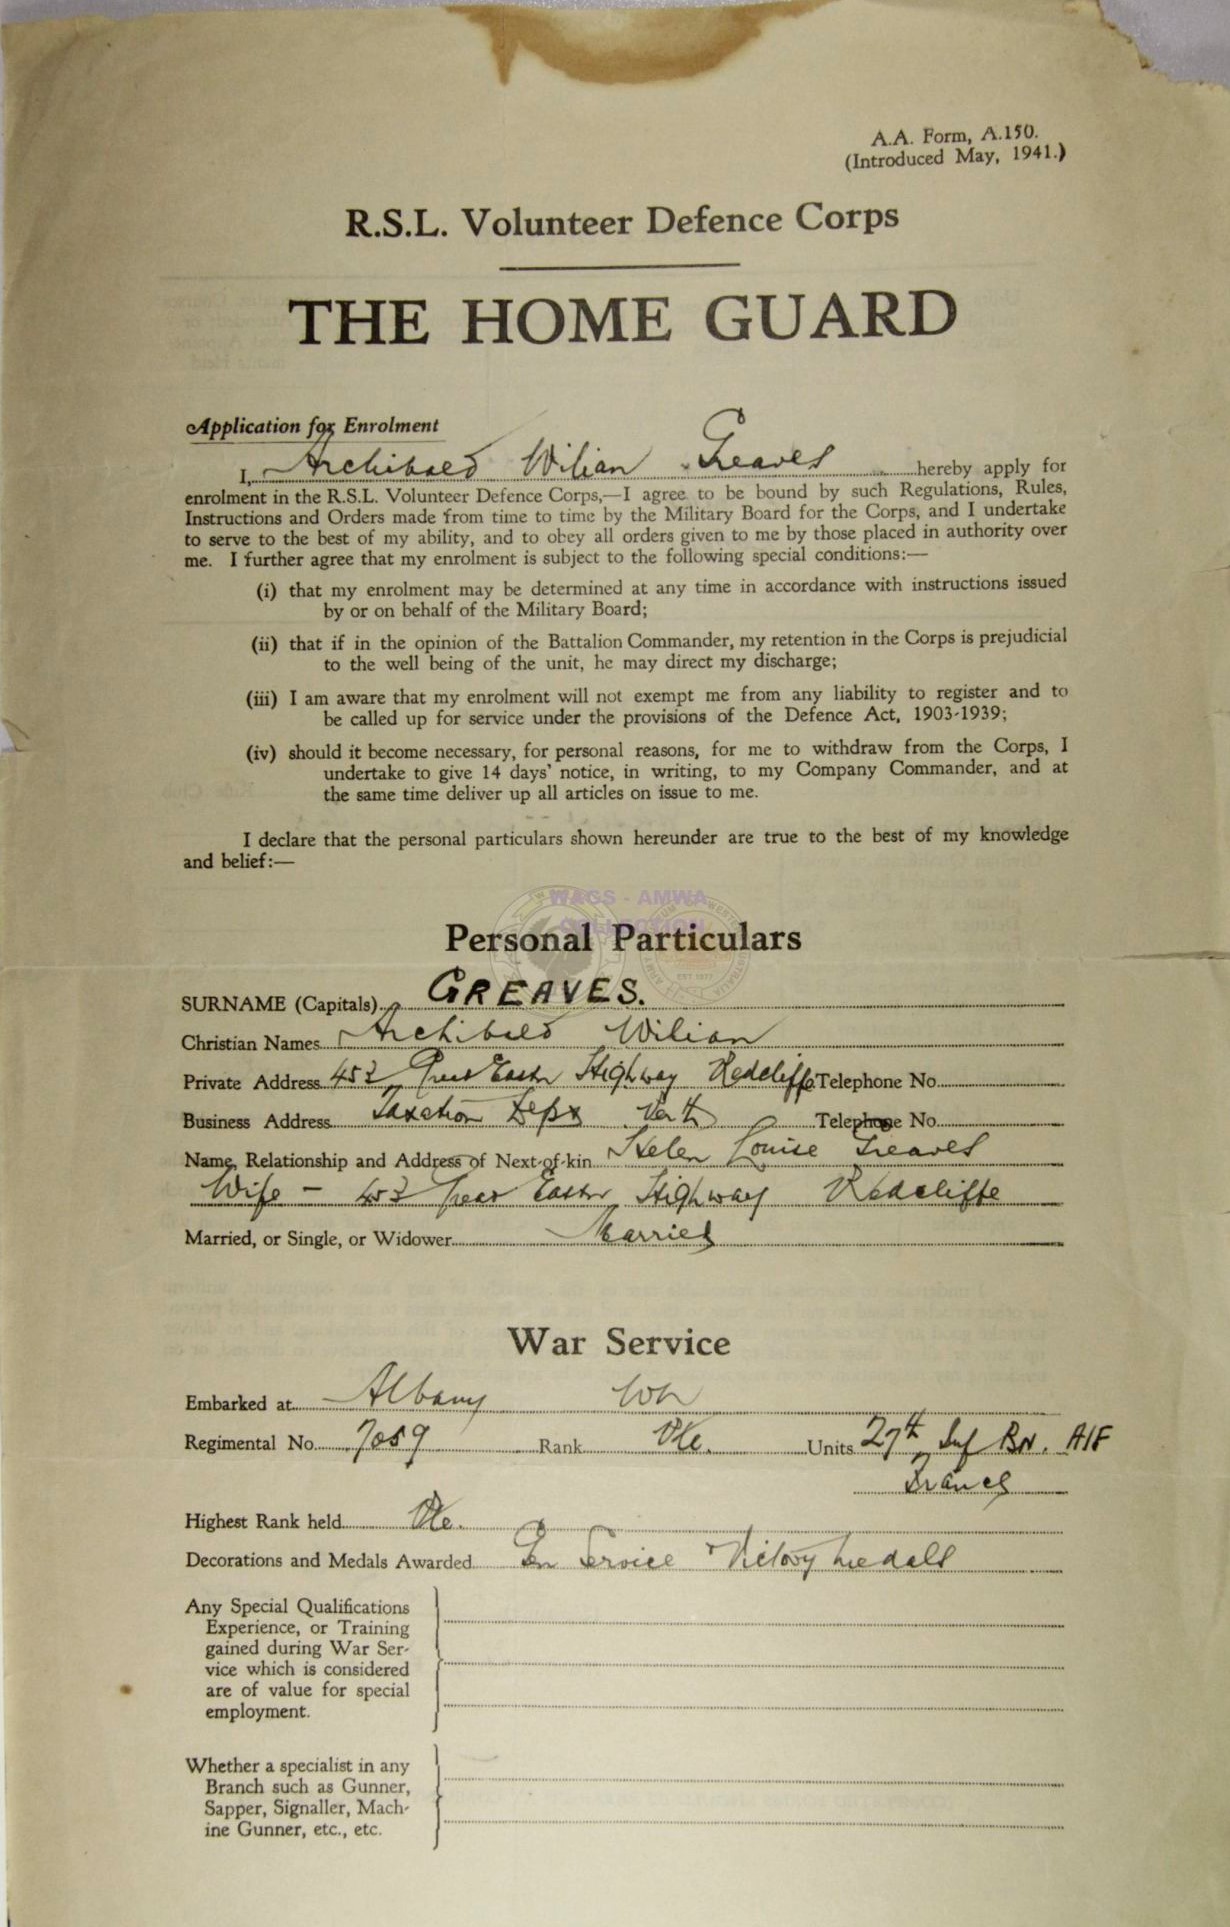 A.A. Form, A.150.
(Introduced May, 1941.)
R.S.L. Volunteer Defence Corps
THE HOME GUARD
Application for Enrolment
I, Archibald Wilian Greaves hereby apply for
enrolment in the R.S.L. Volunteer Defence Corps,—I agree to be bound by such Regulations, Rules,
Instructions and Orders made from time to time by the Military Board for the Corps, and I undertake
to serve to the best of my ability, and to obey all orders given to me by those placed in authority over
me. I further agree that my enrolment is subject to the following special conditions:—
(i) that my enrolment may be determined at any time in accordance with instructions issued
by or on behalf of the Military Board;
(ii) that if in the opinion of the Battalion Commander, my retention in the Corps is prejudicial
to the well being of the unit, he may direct my discharge;
(iii) I am aware that my enrolment will not exempt me from any liability to register and to
be called up for service under the provisions of the Defence Act, 1903-1939;
(iv) should it become necessary, for personal reasons, for me to withdraw from the Corps, I
undertake to give 14 days' notice, in writing, to my Company Commander, and at
the same time deliver up all articles on issue to me.
I declare that the personal particulars shown hereunder are true to the best of my knowledge
and belief:—
WAGS - AMWA
COLLECTION
Personal Particulars
SURNAME (Capitals) GREAVES.
Christian Names Archibald Wilian
Private Address 453 Great Eastn Highway Redcliffe Telephone No.
Business Address Taxation Dept Perth Telephone No.
Name, Relationship and Address of Next-of-kin Helen Louise Greaves
Wife - 453 Great Eastn Highway Redcliffe
Married, or Single, or Widower Married
War Service
Embarked at Albany WA
Regimental No. 7059 Rank Pte. Units 27th Inf BN. AIF
France
Highest Rank held Pte.
Decorations and Medals Awarded Gen Service Victory Medals
Any Special Qualifications
Experience, or Training
gained during War Ser-
vice which is considered
are of value for special
employment.
Whether a specialist in any
Branch such as Gunner,
Sapper, Signaller, Mach-
ine Gunner, etc., etc.